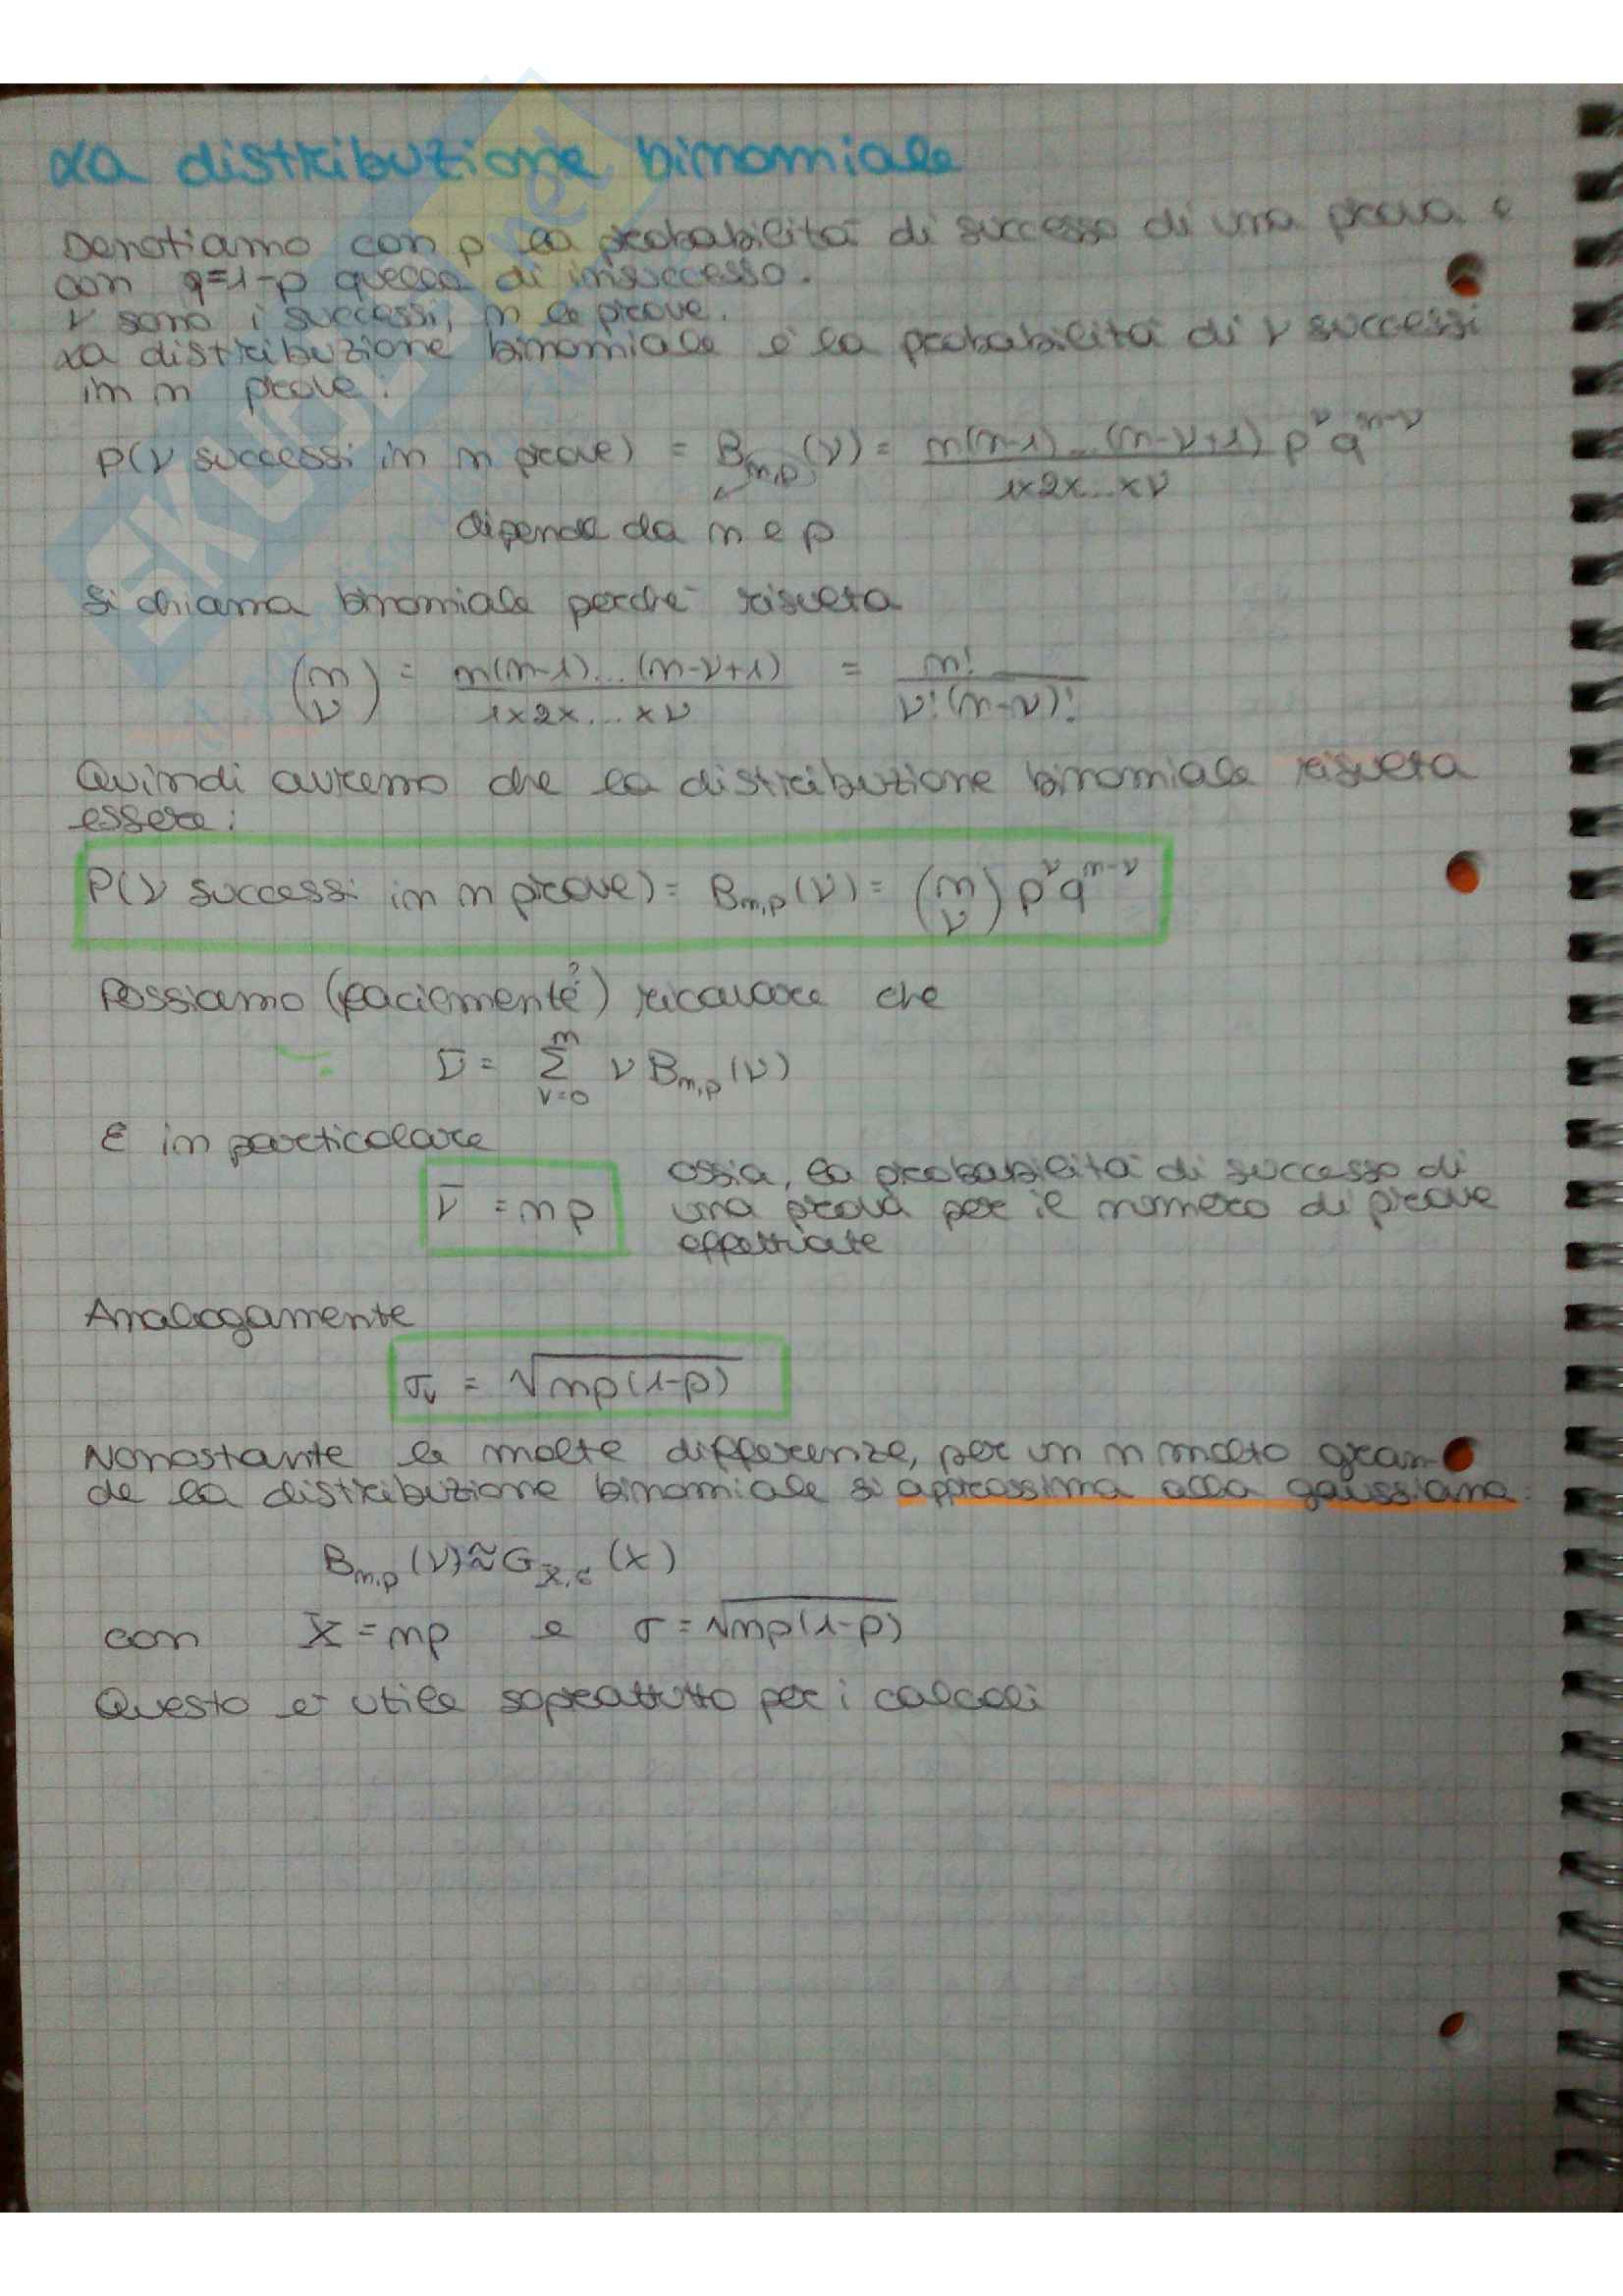 La distribuzione binomiale
Denotiamo con p la probabilità di successo di una prova e
con q=1-p quella di insuccesso.
ν sono i successi, n le prove.
La distribuzione binomiale è la probabilità di ν successi
in n prove.
P(ν successi in n prove) = B_{n,p}(ν) = \frac{n(n-1)...(n-ν+1)}{1x2x...xν} p^ν q^{n-ν}
dipende da n e p
Si chiama binomiale perché risulta
\binom{n}{ν} = \frac{n(n-1)...(n-ν+1)}{1x2x...xν} = \frac{n!}{ν!(n-ν)!}
Quindi avremo che la distribuzione binomiale risulta
essere:
P(ν successi in n prove) = B_{n,p}(ν) = \binom{n}{ν} p^ν q^{n-ν}
Possiamo (facilmente?) ricavare che
ν̄ = \sum_{ν=0}^{n} ν B_{n,p}(ν)
E in particolare
ν̄ = np
ossia, la probabilità di successo di
una prova per il numero di prove
effettuate
Analogamente
σ_ν = √(np(1-p))
Nonostante le molte differenze, per un n molto gran-
de la distribuzione binomiale si approssima alla gaussiana.
B_{n,p}(ν) ≈ G_{X,σ}(x)
con X = np e σ = √(np(1-p))
Questo è utile soprattutto per i calcoli
SKUOLA.net